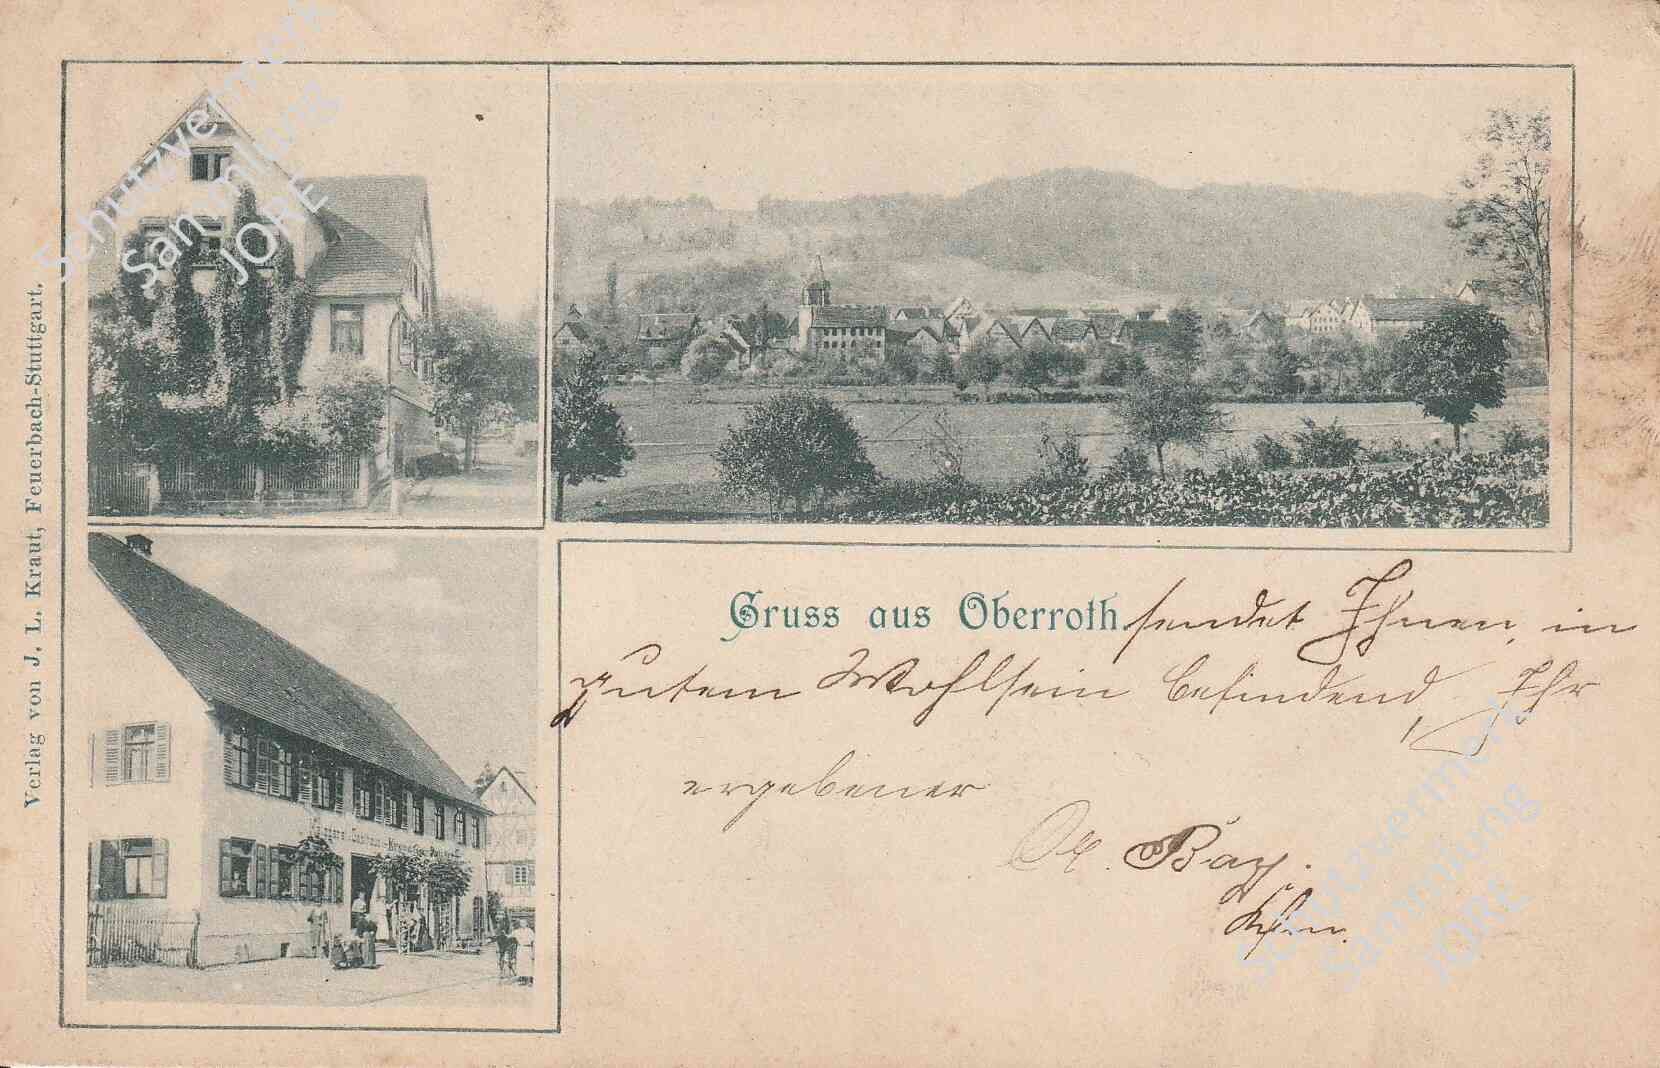 Verlag von J. L. Kraut, Feuerbach-Stuttgart.
Gruss aus Oberroth sendet Ihnen, in
gutem Wohlsein befindend, Ihr
ergebener
Bay.
Schutzvermerk
Sammlung
JORE
Schutzvermerk
Sammlung
JORE